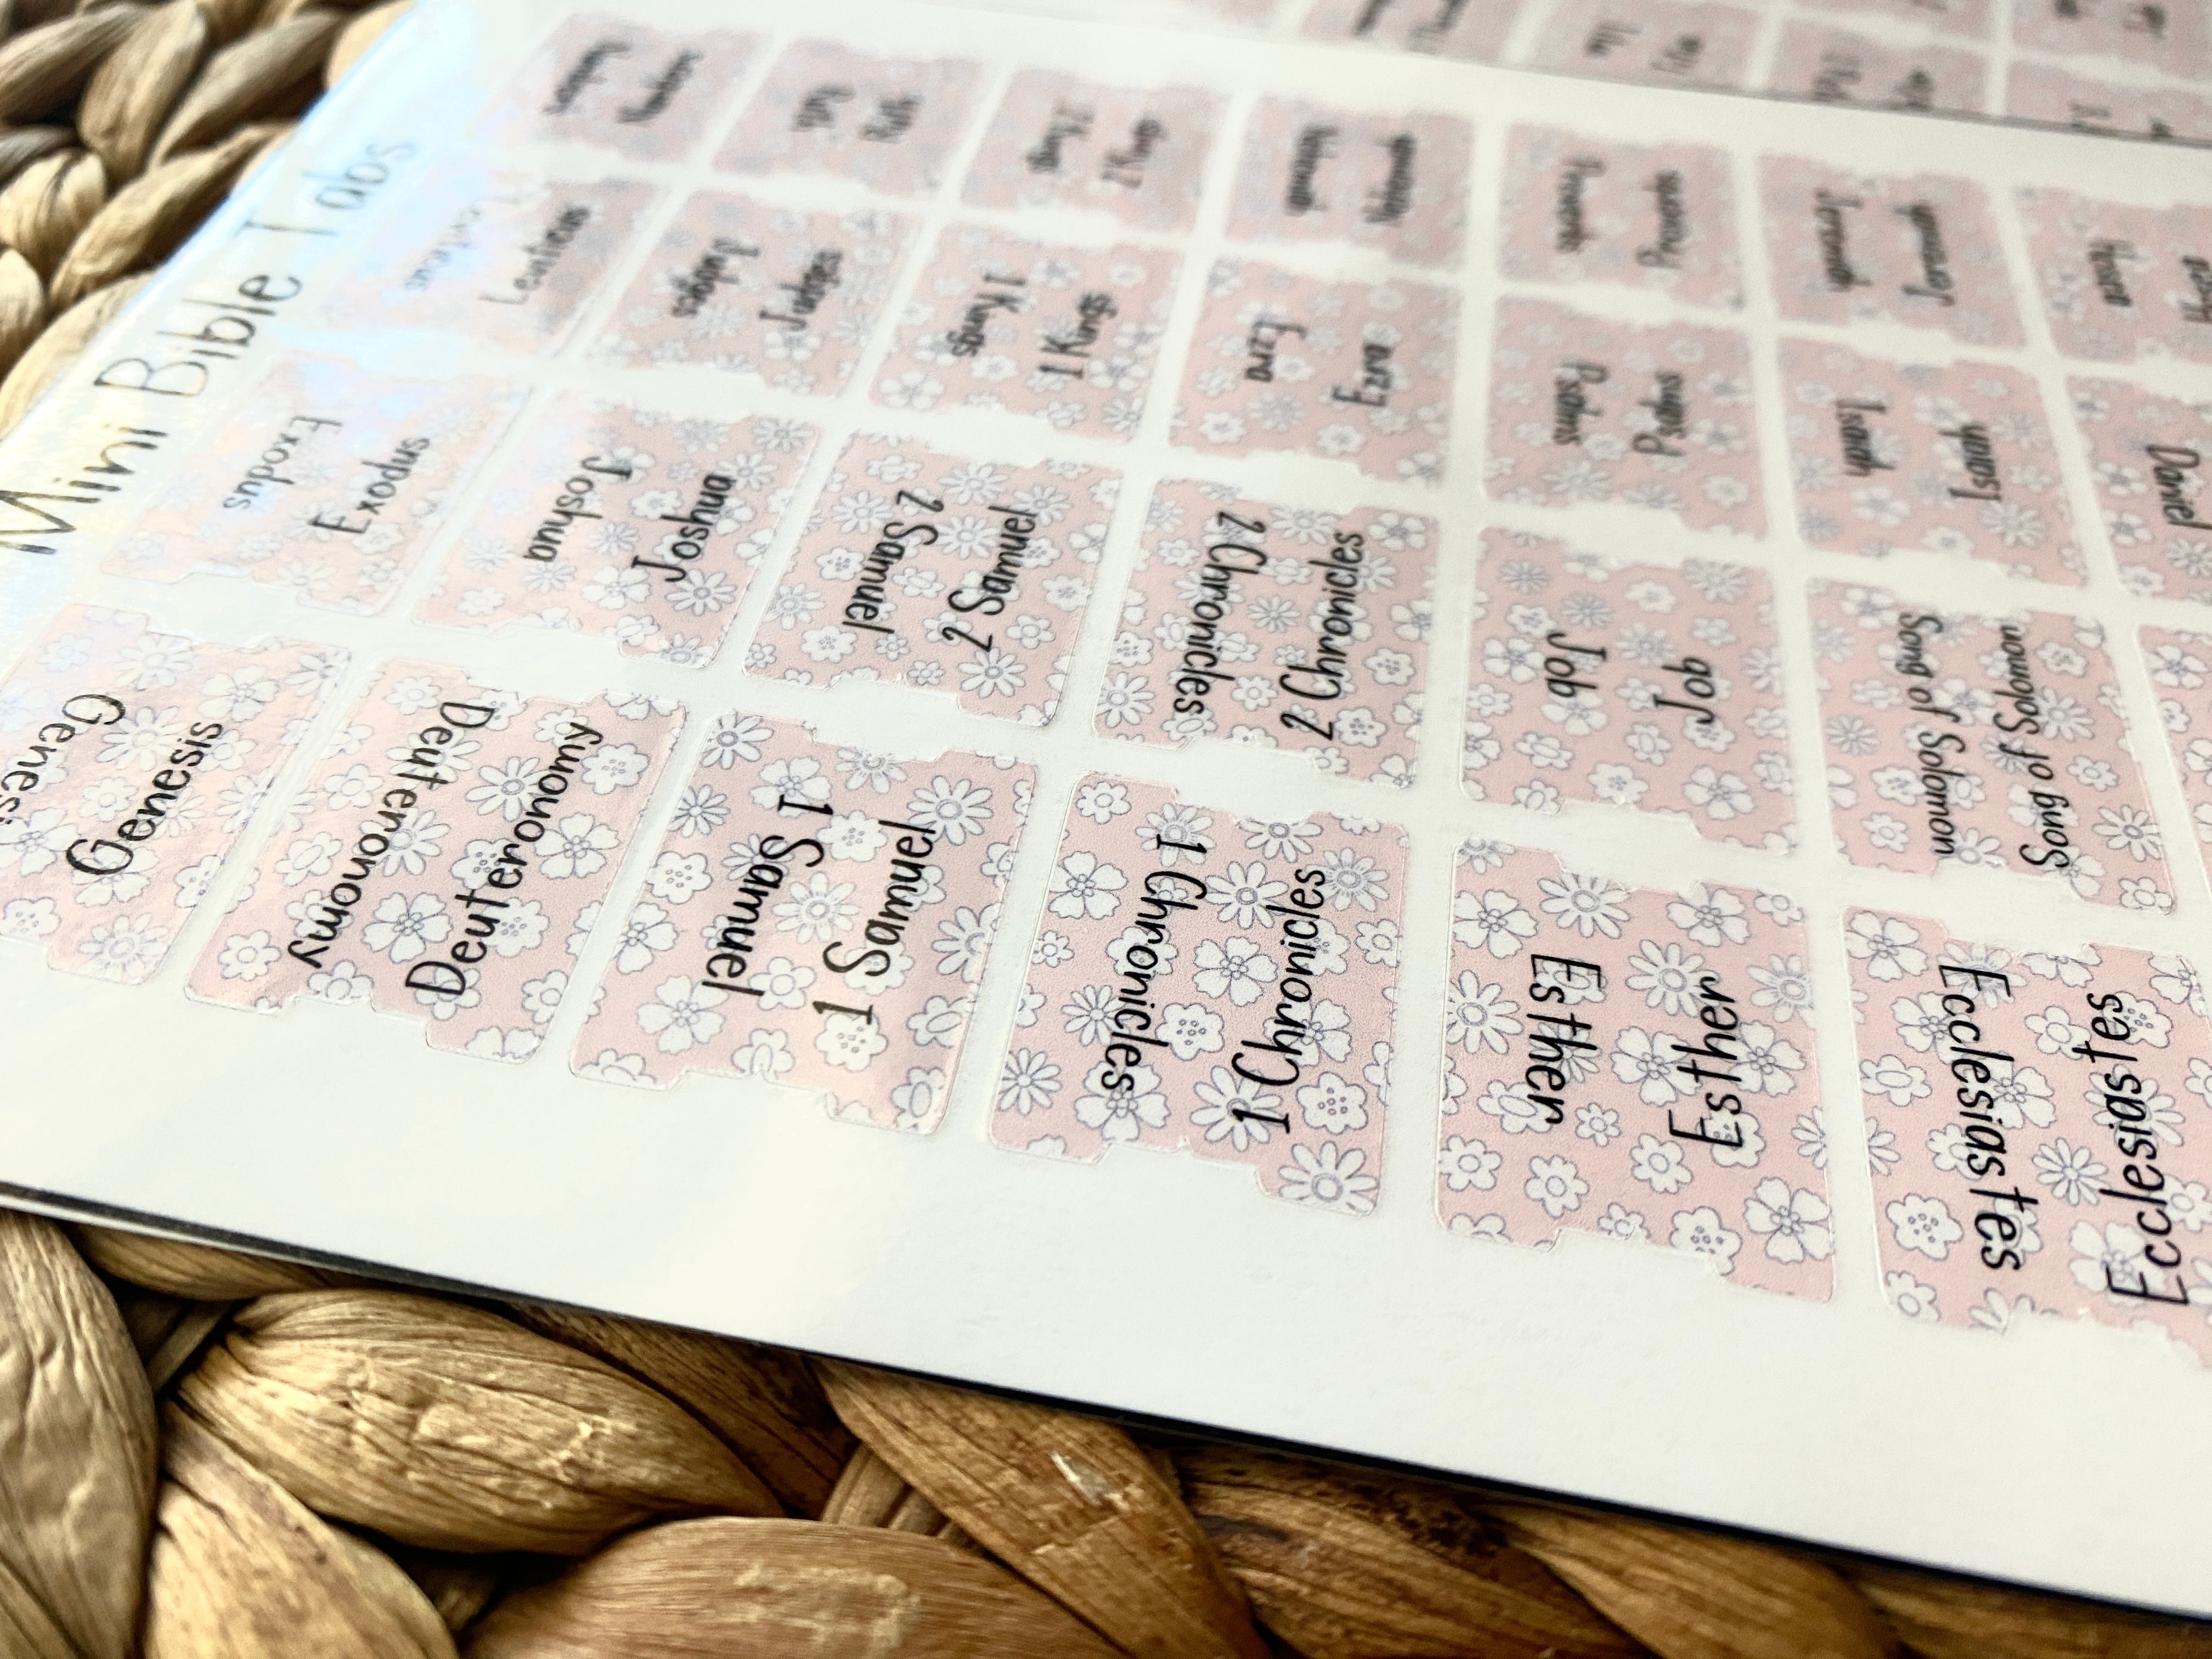 Mini Bible Tabs
Genesis
Genesis
Exodus
Exodus
Leviticus
Leviticus
Numbers
Numbers
Deuteronomy
Deuteronomy
Joshua
Joshua
Judges
Judges
Ruth
Ruth
1 Samuel
1 Samuel
2 Samuel
2 Samuel
1 Kings
1 Kings
2 Kings
2 Kings
1 Chronicles
1 Chronicles
2 Chronicles
2 Chronicles
Ezra
Ezra
Nehemiah
Nehemiah
Esther
Esther
Job
Job
Psalms
Psalms
Proverbs
Proverbs
Ecclesiastes
Ecclesiastes
Song of Solomon
Song of Solomon
Isaiah
Isaiah
Jeremiah
Jeremiah
Daniel
Hosea
Hosea